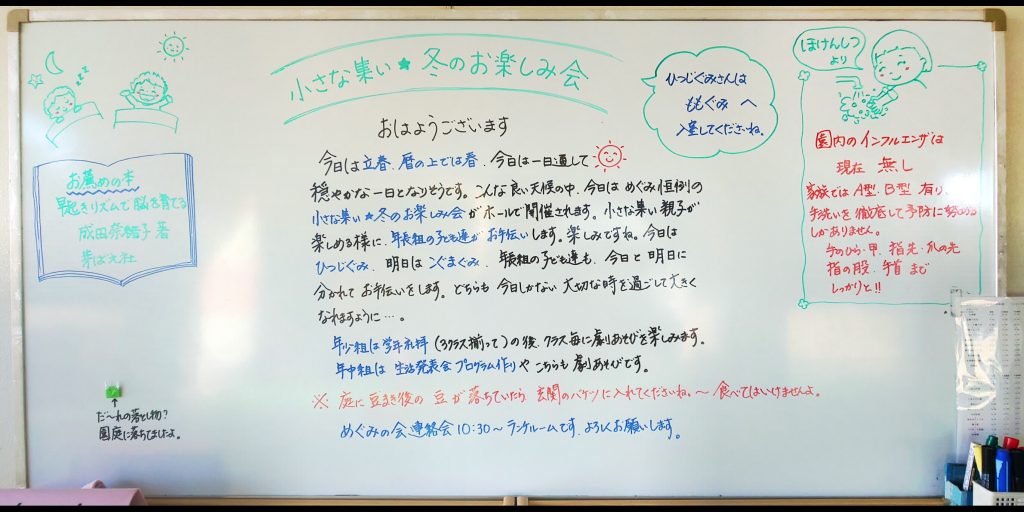 小さな集い★冬のお楽しみ会
ひつじぐみさんは
ももぐみ へ
入室してくださいね。
ほけんしつ
より
zzz
おはようございます
今日は立春、暦の上では春、今日は一日通して
穏やかな一日となりそうです。こんな良い天候の中、今日はめぐみ恒例の
小さな集い★冬のお楽しみ会がホールで開催されます。小さな集い親子が
楽しめる様に、年長組の子ども達がお手伝いします。楽しみですね。今日は
ひつじぐみ、明日はこぐまぐみ、年長組の子ども達も、今日と明日に
分かれてお手伝いをします。どちらも今日しかない大切な時を過ごして大きく
なれますように…。
年少組は学年礼拝(3クラス揃って)の後、クラス毎に劇あそびを楽しみます。
年中組は生活発表会プログラム作りやこちらも劇あそびです。
※ 庭に豆まき後の豆が落ちていたら玄関のバケツに入れてくださいね。～食べてはいけませんよ。
めぐみの会連絡会10:30～ランチルームです。よろしくお願いします。
お薦めの本
早起きリズムで脳を育てる
成田奈緒子著
芽ばえ社
↑
だ～れの落とし物?
園庭に落ちてましたよ。
園内のインフルエンザは
現在 無し
家族ではA型、B型 有り、
手洗いを徹底して予防に努める
しかありません。
手のひら・甲、指先・爪の先
指の股、手首まで
しっかりと!!